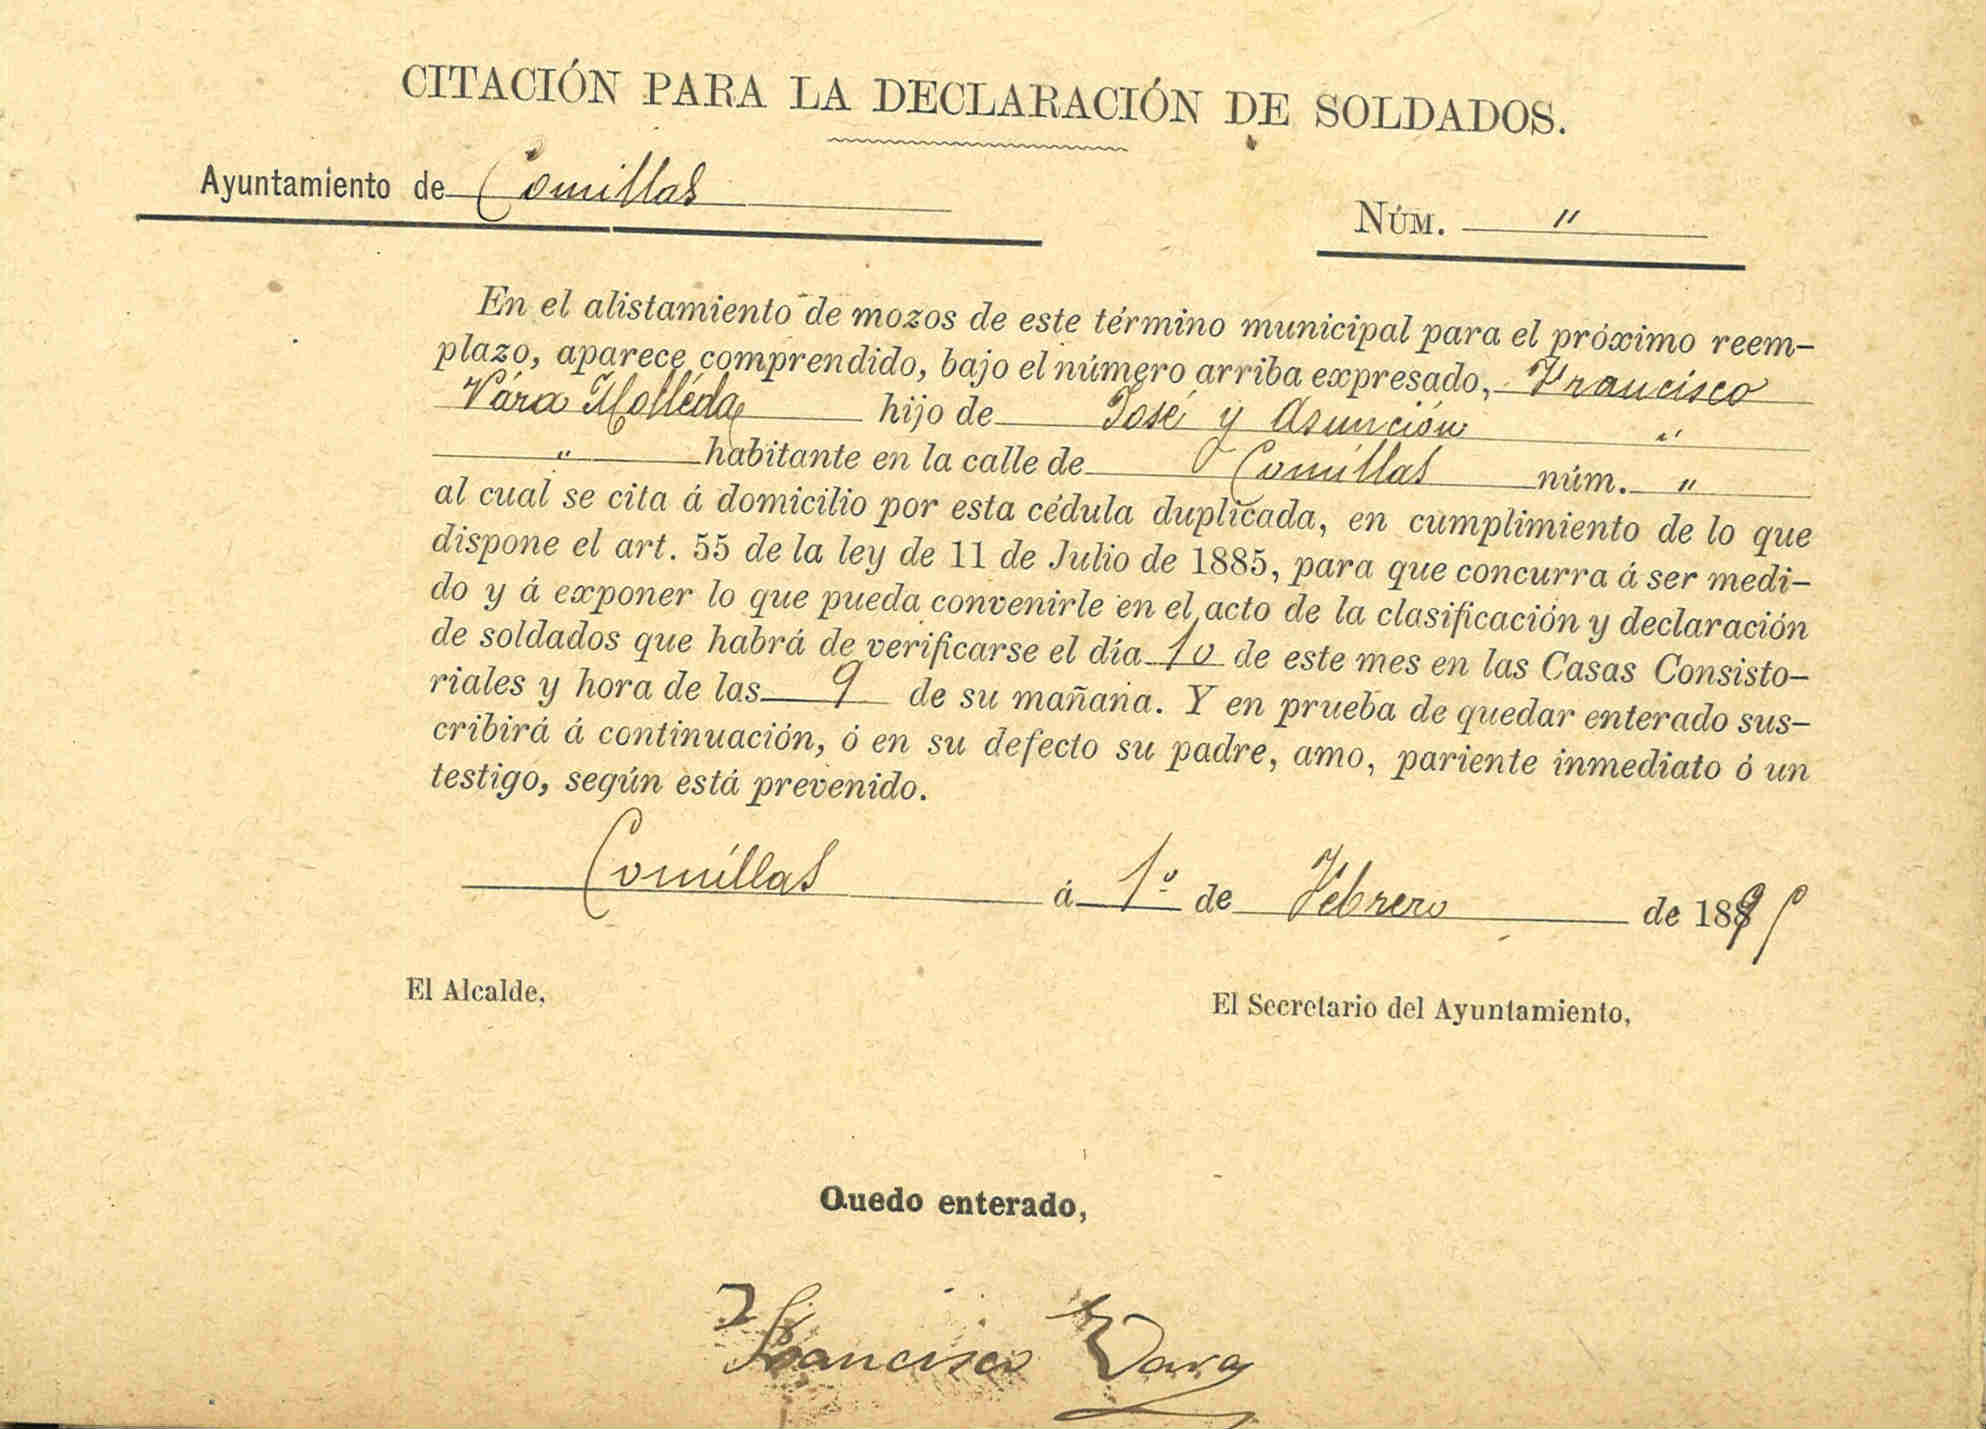 CITACIÓN PARA LA DECLARACIÓN DE SOLDADOS.
Ayuntamiento de Comillas
NÚM. "
En el alistamiento de mozos de este término municipal para el próximo reem-
plazo, aparece comprendido, bajo el número arriba expresado, Francisco
Vára Molléda hijo de José y Asunción "
" habitante en la calle de Comillas núm. "
al cual se cita á domicilio por esta cédula duplicada, en cumplimiento de lo que
dispone el art. 55 de la ley de 11 de Julio de 1885, para que concurra á ser medi-
do y á exponer lo que pueda convenirle en el acto de la clasificación y declaración
de soldados que habrá de verificarse el día 10 de este mes en las Casas Consisto-
riales y hora de las 9 de su mañana. Y en prueba de quedar enterado sus-
cribirá á continuación, ó en su defecto su padre, amo, pariente inmediato ó un
testigo, según está prevenido.
Comillas á 1º de Febrero de 1895
El Alcalde,
El Secretario del Ayuntamiento,
Quedo enterado,
Francisco Vara